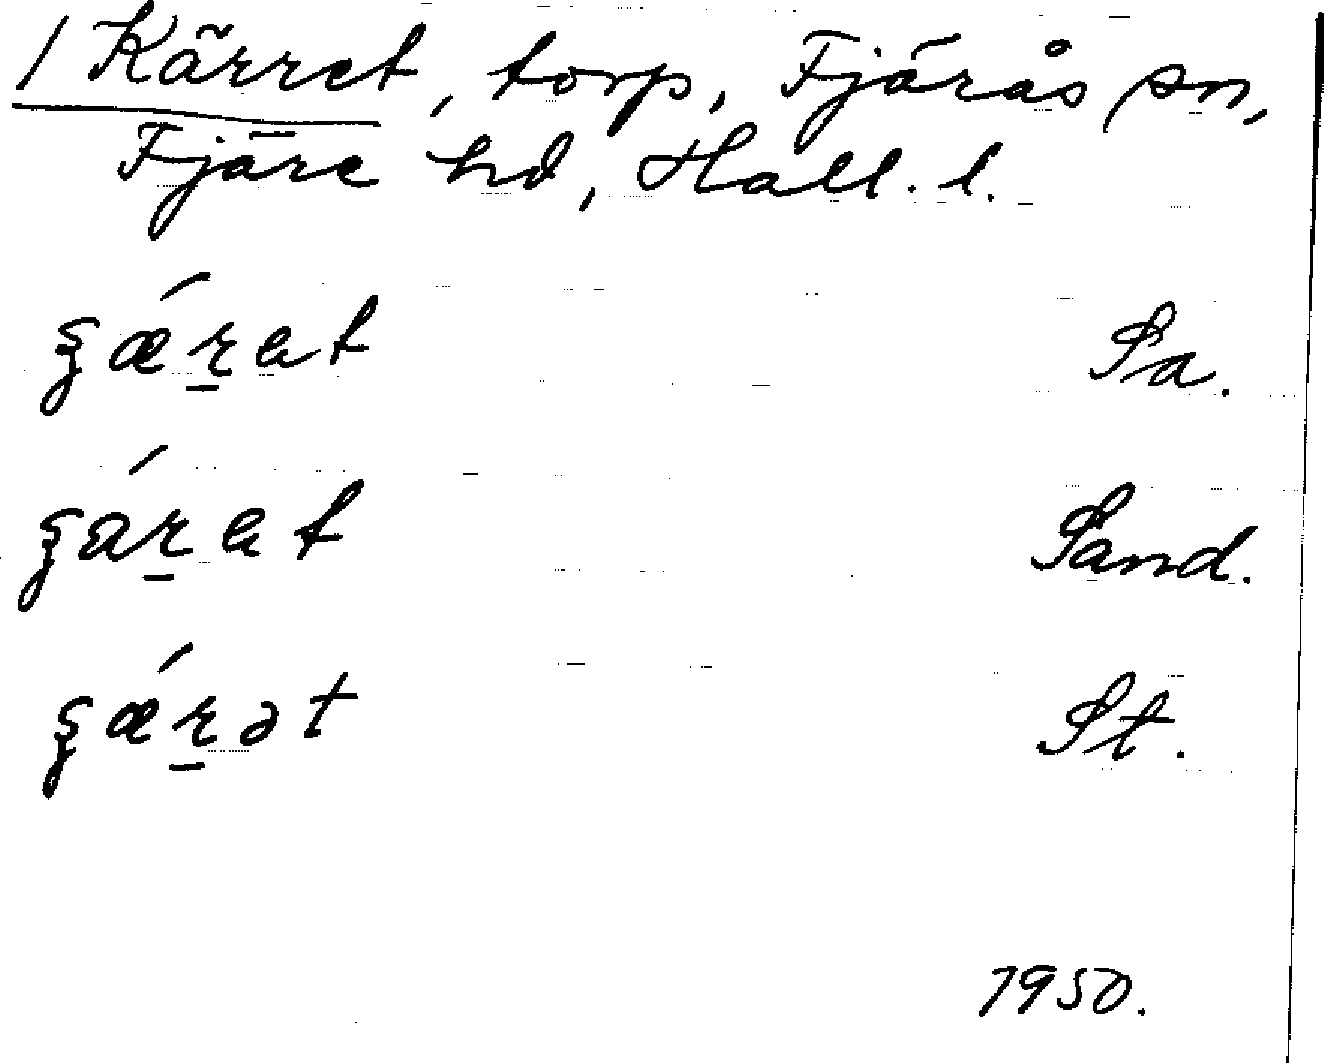 / Kärret, torp, Fjärås sn,
Fjäre hd, Hall. l.
ʂǽr̠at Sa.
ʂár̠at Sand.
ʂǽr̠ət St.
1950.